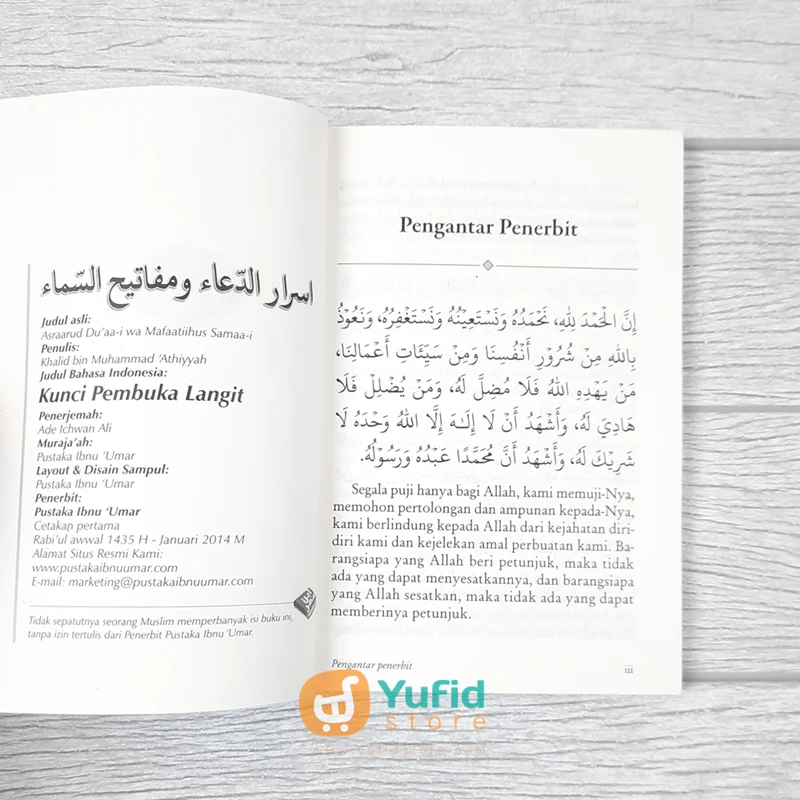 اسرار الدّعاء ومفاتيح السّماء
Judul asli:
Asraarud Du'aa-i wa Mafaatiihus Samaa-i
Penulis:
Khalid bin Muhammad 'Athiyyah
Judul Bahasa Indonesia:
Kunci Pembuka Langit
Penerjemah:
Ade Ichwan Ali
Muraja'ah:
Pustaka Ibnu 'Umar
Layout & Disain Sampul:
Pustaka Ibnu 'Umar
Penerbit:
Pustaka Ibnu 'Umar
Cetakan pertama
Rabi'ul awwal 1435 H - Januari 2014 M
Alamat Situs Resmi Kami:
www.pustakaibnuumar.com
E-mail: marketing@pustakaibnuumar.com
Tidak sepatutnya seorang Muslim memperbanyak isi buku ini,
tanpa izin tertulis dari Penerbit Pustaka Ibnu 'Umar.
Pengantar Penerbit
إِنَّ الْحَمْدَ لِلَّهِ، نَحْمَدُهُ وَنَسْتَعِيْنُهُ وَنَسْتَغْفِرُهُ، وَنَعُوْذُ
بِاللهِ مِنْ شُرُوْرِ أَنْفُسِنَا وَمِنْ سَيِّئَاتِ أَعْمَالِنَا،
مَنْ يَهْدِهِ اللهُ فَلَا مُضِلَّ لَهُ، وَمَنْ يُضْلِلْ فَلَا
هَادِيَ لَهُ، وَأَشْهَدُ أَنْ لَا إِلَـٰهَ إِلَّا اللهُ وَحْدَهُ لَا
شَرِيْكَ لَهُ، وَأَشْهَدُ أَنَّ مُحَمَّدًا عَبْدُهُ وَرَسُوْلُهُ.
Segala puji hanya bagi Allah, kami memuji-Nya,
memohon pertolongan dan ampunan kepada-Nya,
kami berlindung kepada Allah dari kejahatan diri-
diri kami dan kejelekan amal perbuatan kami. Ba-
rangsiapa yang Allah beri petunjuk, maka tidak
ada yang dapat menyesatkannya, dan barangsiapa
yang Allah sesatkan, maka tidak ada yang dapat
memberinya petunjuk.
Pengantar penerbit
iii
Yufid
store
www.yufidstore.com